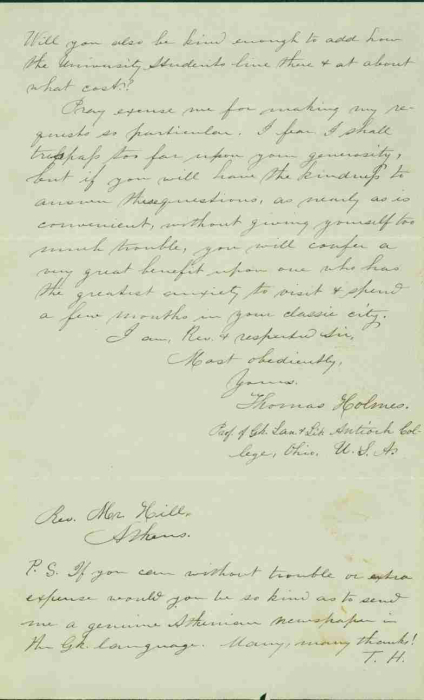 Will you also be kind enough to add how
the University Students live there & at about
what cost?
Pray excuse me for making my re-
quests so particular. I fear I shall
trespass too far upon your generosity,
but if you will have the kindness to
answer these questions, as nearly as is
convenient, without giving yourself too
much trouble, you will confer a
very great benefit upon one who has
the greatest anxiety to visit & spend
a few months in your classic city.
I am, Rev. & respected Sir,
Most obediently,
Yours.
Thomas Holmes.
Prof. of Gk. Lan. & Lit. Antioch Col-
lege, Ohio. U.S.A.
Rev. Mr. Hill,
Athens.
P.S. If you can without trouble or extra
expense would you be so kind as to send
me a genuine Athenian newspaper in
the Gk. language. Many, many thanks!
T. H.